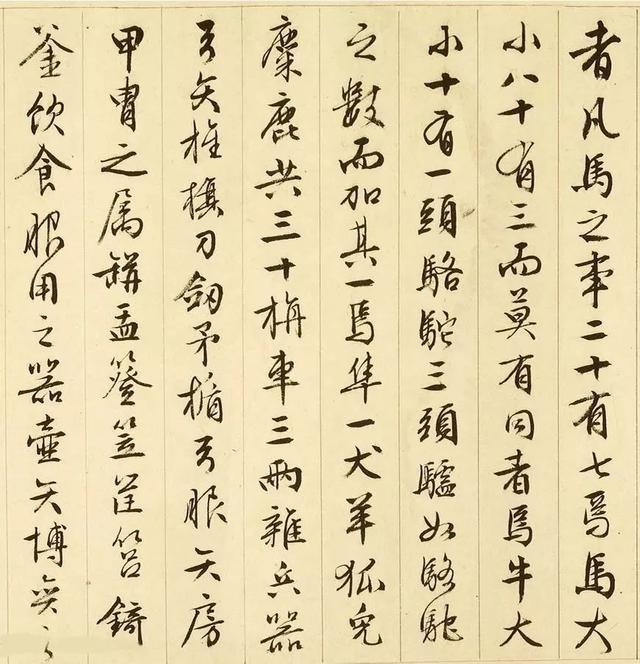 者凡馬之事二十有七焉馬大
小八十有三而莫有同者焉牛大
小十有一頭駱駝三頭驢如駱駝
之數而加其一焉隼一犬羊狐兔
麋鹿共三十旃車三兩雜兵器
弓矢旌旗刀劒矛楯弓服矢房
甲冑之属缾盂簦笠筐筥錡
釜飲食服用之器壷矢博弈之